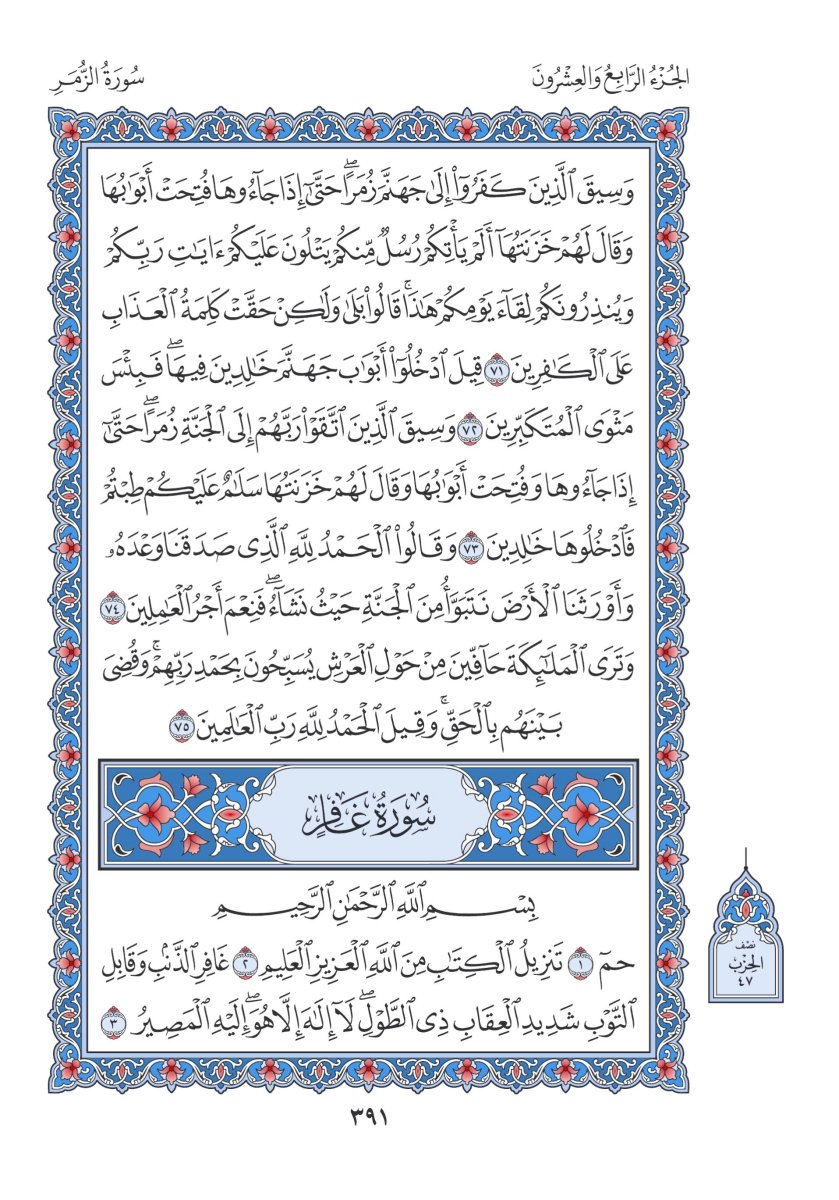 الجُزْءُ الرَّابِعُ وَالعِشْرُونَ
سُورَةُ الزُّمَرِ
وَسِيقَ ٱلَّذِينَ كَفَرُوٓاْ إِلَىٰ جَهَنَّمَ زُمَرًاۖ حَتَّىٰٓ إِذَا جَآءُوهَا فُتِحَتۡ أَبۡوَٰبُهَا
وَقَالَ لَهُمۡ خَزَنَتُهَآ أَلَمۡ يَأۡتِكُمۡ رُسُلٞ مِّنكُمۡ يَتۡلُونَ عَلَيۡكُمۡ ءَايَٰتِ رَبِّكُمۡ
وَيُنذِرُونَكُمۡ لِقَآءَ يَوۡمِكُمۡ هَٰذَاۚ قَالُواْ بَلَىٰ وَلَٰكِنۡ حَقَّتۡ كَلِمَةُ ٱلۡعَذَابِ
عَلَى ٱلۡكَٰفِرِينَ ٧١ قِيلَ ٱدۡخُلُوٓاْ أَبۡوَٰبَ جَهَنَّمَ خَٰلِدِينَ فِيهَاۖ فَبِئۡسَ
مَثۡوَى ٱلۡمُتَكَبِّرِينَ ٧٢ وَسِيقَ ٱلَّذِينَ ٱتَّقَوۡاْ رَبَّهُمۡ إِلَى ٱلۡجَنَّةِ زُمَرًاۖ حَتَّىٰٓ
إِذَا جَآءُوهَا وَفُتِحَتۡ أَبۡوَٰبُهَا وَقَالَ لَهُمۡ خَزَنَتُهَا سَلَٰمٌ عَلَيۡكُمۡ طِبۡتُمۡ
فَٱدۡخُلُوهَا خَٰلِدِينَ ٧٣ وَقَالُواْ ٱلۡحَمۡدُ لِلَّهِ ٱلَّذِي صَدَقَنَا وَعۡدَهُۥ
وَأَوۡرَثَنَا ٱلۡأَرۡضَ نَتَبَوَّأُ مِنَ ٱلۡجَنَّةِ حَيۡثُ نَشَآءُۖ فَنِعۡمَ أَجۡرُ ٱلۡعَٰمِلِينَ ٧٤
وَتَرَى ٱلۡمَلَٰٓئِكَةَ حَآفِّينَ مِنۡ حَوۡلِ ٱلۡعَرۡشِ يُسَبِّحُونَ بِحَمۡدِ رَبِّهِمۡۚ وَقُضِيَ
بَيۡنَهُم بِٱلۡحَقِّۚ وَقِيلَ ٱلۡحَمۡدُ لِلَّهِ رَبِّ ٱلۡعَٰلَمِينَ ٧٥
سُورَةُ غَافِرٍ
بِسۡمِ ٱللَّهِ ٱلرَّحۡمَٰنِ ٱلرَّحِيمِ
حمٓ ١ تَنزِيلُ ٱلۡكِتَٰبِ مِنَ ٱللَّهِ ٱلۡعَزِيزِ ٱلۡعَلِيمِ ٢ غَافِرِ ٱلذَّنۢبِ وَقَابِلِ
ٱلتَّوۡبِ شَدِيدِ ٱلۡعِقَابِ ذِي ٱلطَّوۡلِۖ لَآ إِلَٰهَ إِلَّا هُوَۖ إِلَيۡهِ ٱلۡمَصِيرُ ٣
نصف
الحزب
٤٧
٣٩١